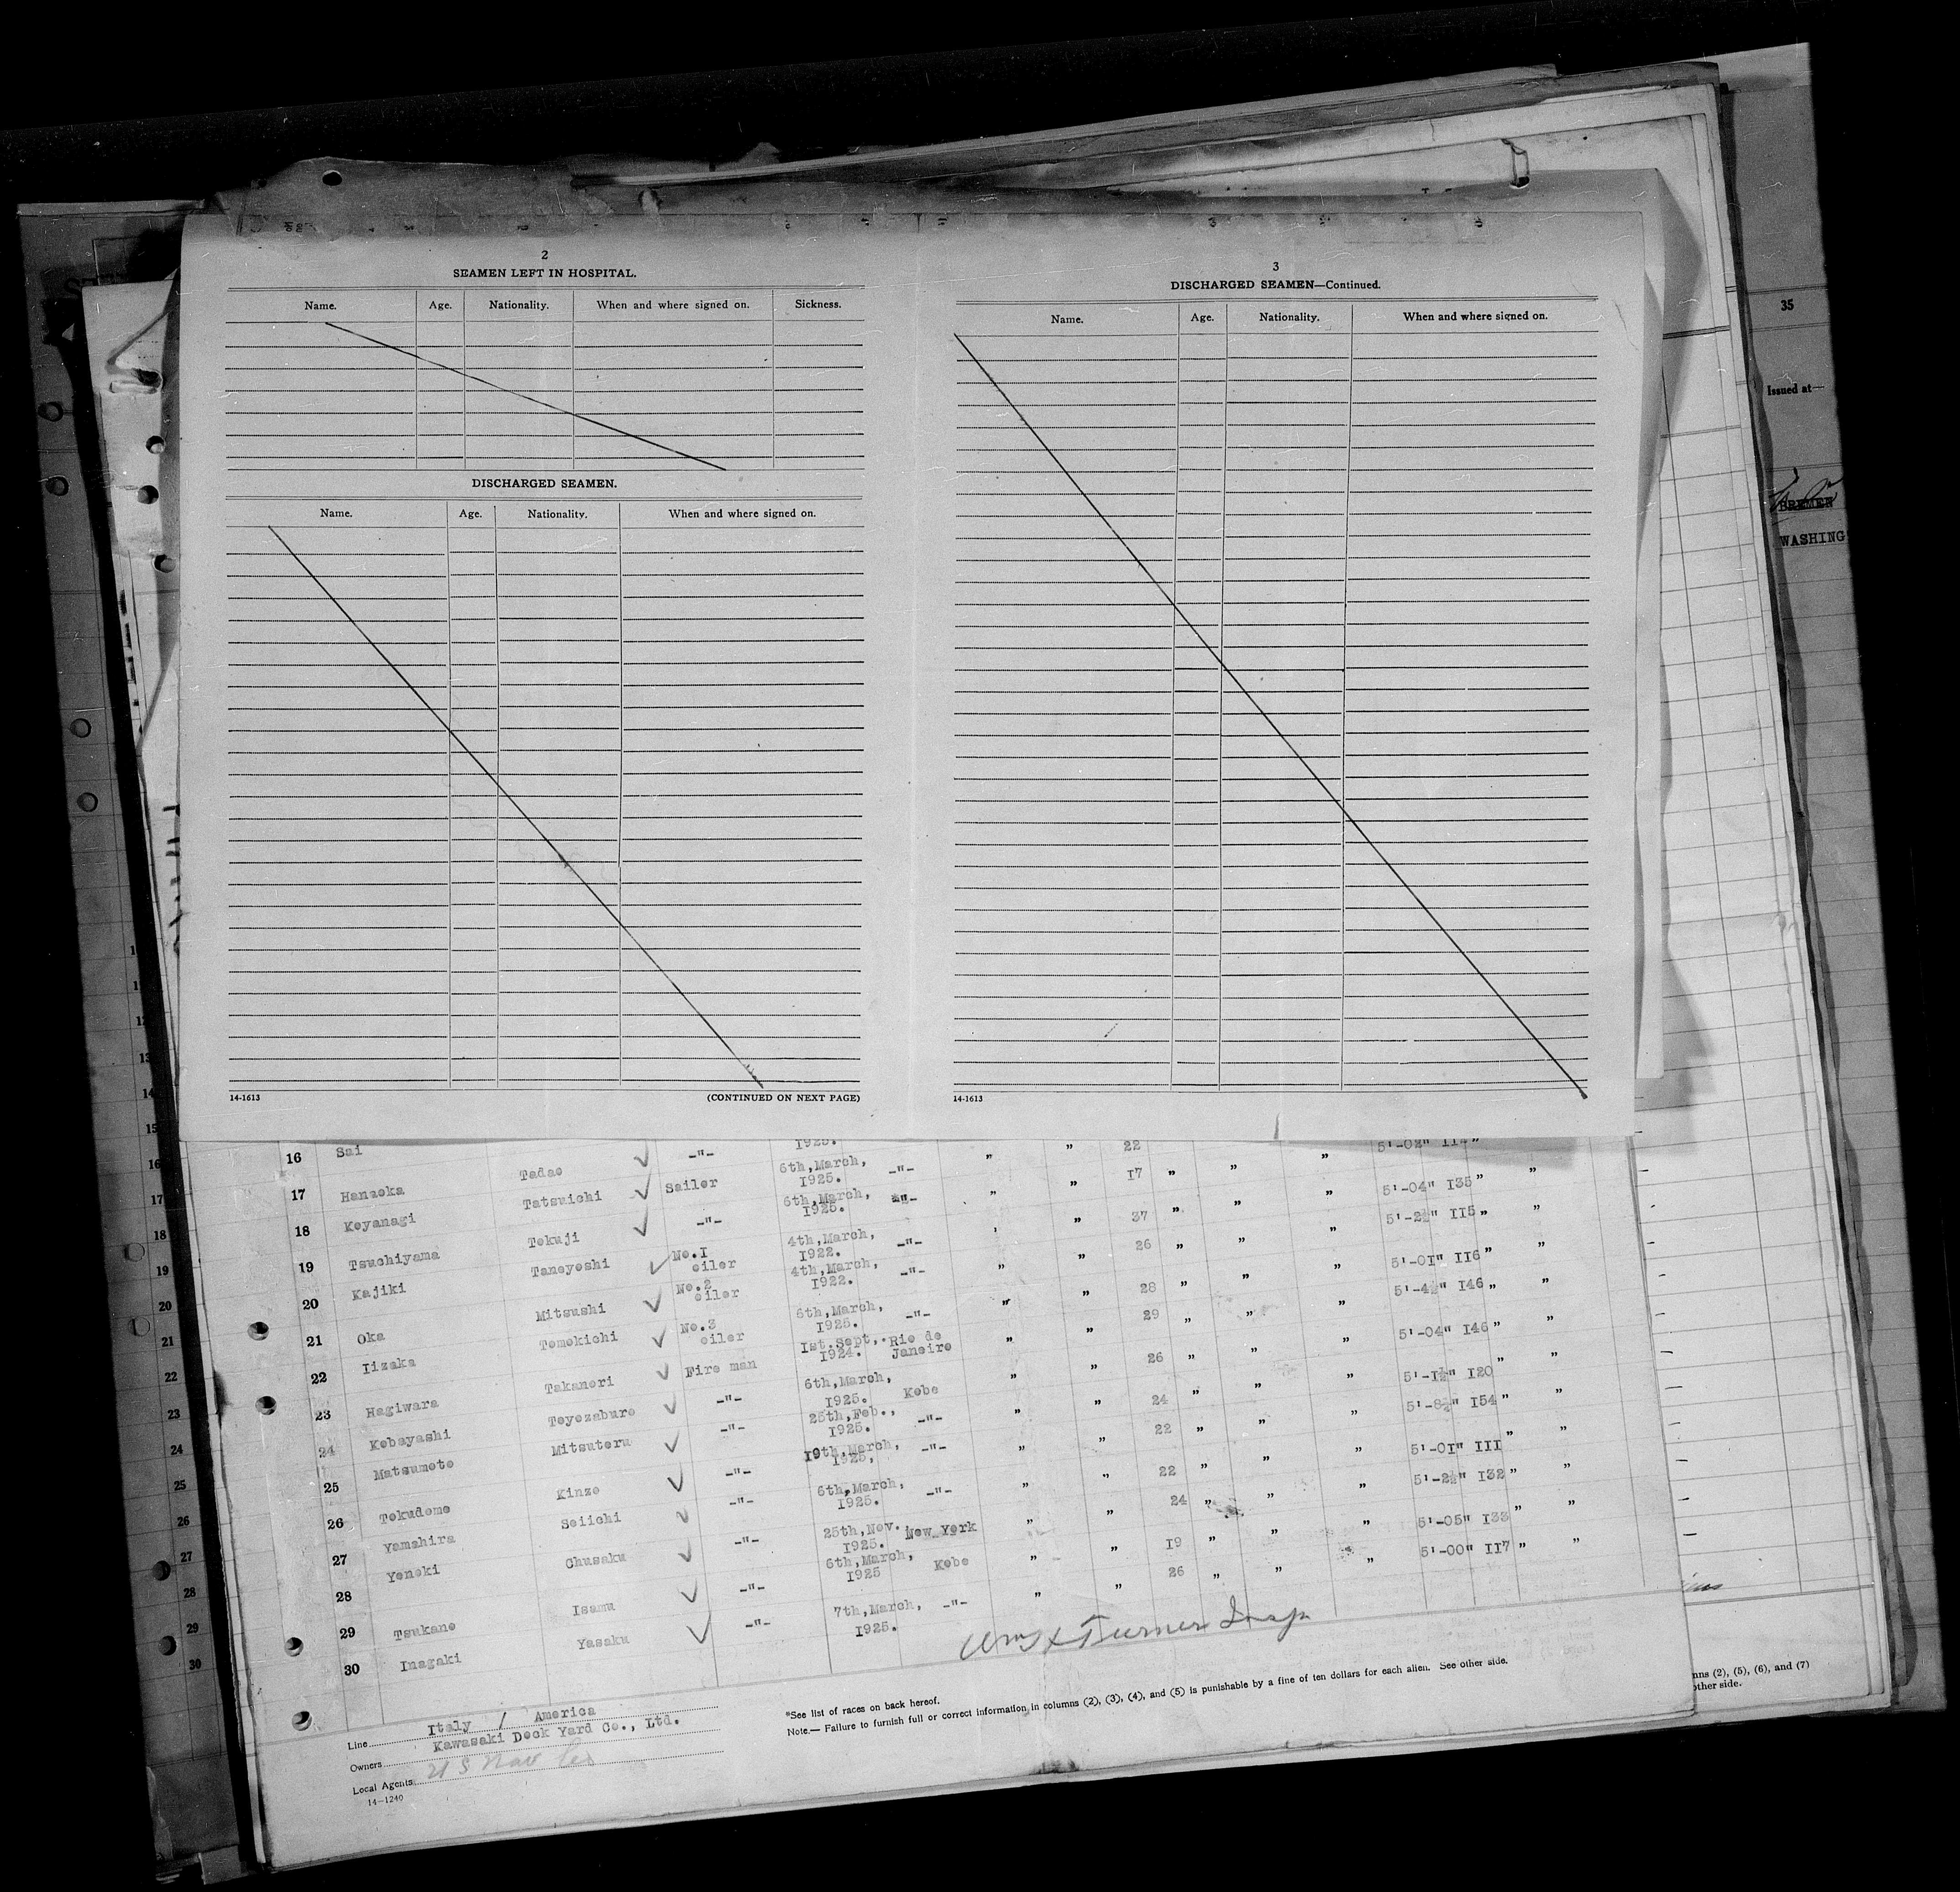 2
SEAMEN LEFT IN HOSPITAL.
Name. Age. Nationality. When and where signed on. Sickness.
DISCHARGED SEAMEN.
Name. Age. Nationality. When and where signed on.
14-1613 (CONTINUED ON NEXT PAGE)
3
DISCHARGED SEAMEN—Continued.
Name. Age. Nationality. When and where signed on.
14-1613
35
Issued at—
BREMEN
WASHING
16 Sai Tadao -"- 6th,March, 1925. -"- " " 22 " " "
17 Hanaoka Tatsuichi Sailer 6th,March, 1925. -"- " " 17 " " " 5'-04" I35 " "
18 Koyanagi Tokuji -"- 4th,March, 1922. -"- " " 37 " " " 5'-2½" II5 " "
19 Tsuchiyama Taneyoshi No.I oiler 4th,March, 1922. -"- " " 26 " " " 5'-0I" II6 " "
20 Kajiki Mitsushi No.2 oiler 6th,March, 1925. -"- " " 28 " " " 5'-4½" I46 " "
21 Oka Tomokichi No.3 oiler Ist.Sept,. 1924. Rio de Janeiro " " 29 " " " 5'-04" I46 " "
22 Iizaka Takanori Fire man 6th,March, 1925. Kobe " " 26 " " " 5'-I½" I20 " "
23 Hagiwara Toyozaburo -"- 25th,Feb., 1925. -"- " " 24 " " " 5'-8½" I54 " "
24 Kobayashi Mitsuteru -"- I9th,March, 1925. -"- " " 22 " " " 5'-0I" III " "
25 Matsumoto Kinzo -"- 6th,March, 1925. -"- " " 22 " " " 5'-2½" I32 " "
26 Tokudome Seiichi -"- 25th,Nov. 1925. New York " " 24 " " " 5'-05" I33 " "
27 Yamahira Chusaku -"- 6th,March, 1925 Kobe " " I9 " " " 5'-00" II7 " "
28 Yoneki Isamu -"- 7th,March, 1925. -"- " " 26 " " "
29 Tsukano Yasaku -"-
30 Inagaki
Wm J Turner Insp
Line Italy / America
Owners Kawasaki Dock Yard Co., Ltd.
Local Agents U S Nav Co
14-1240
*See list of races on back hereof.
Note.— Failure to furnish full or correct information in columns (2), (3), (4), and (5) is punishable by a fine of ten dollars for each alien. See other side.
(2), (5), (6), and (7)
other side.